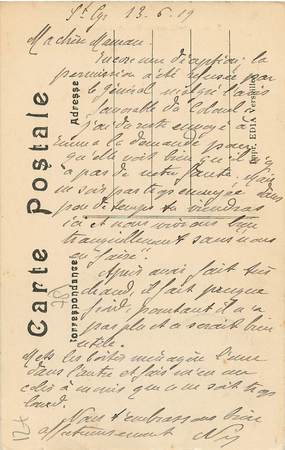 St Cyr 13-6-19
Ma chère Maman.
Encore une déception: la
permission a été refusée par
le général malgré l'avis
favorable du Colonel
j'ai de suite envoyé à
Emma la demande pour
qu'elle voie bien qu'il n'y
a pas de notre faute. Mais
ne sois pas trop ennuyée dans
peu de temps tu viendras
ici et nous vivrons bien
tranquillement sans nous
en faire.
Après avoir fait très
chaud, il fait presque
froid, pourtant il n'a
pas plu et ce serait bien
utile.
Mets les boîtes ménagère l'une
dans l'autre et fais m'en un
colis à moins que ce ne soit trop
lourd.
Nous t'embrassons bien
affectueusement
Carte Postale
Correspondance
Adresse
Impr. EDIA Versailles
124